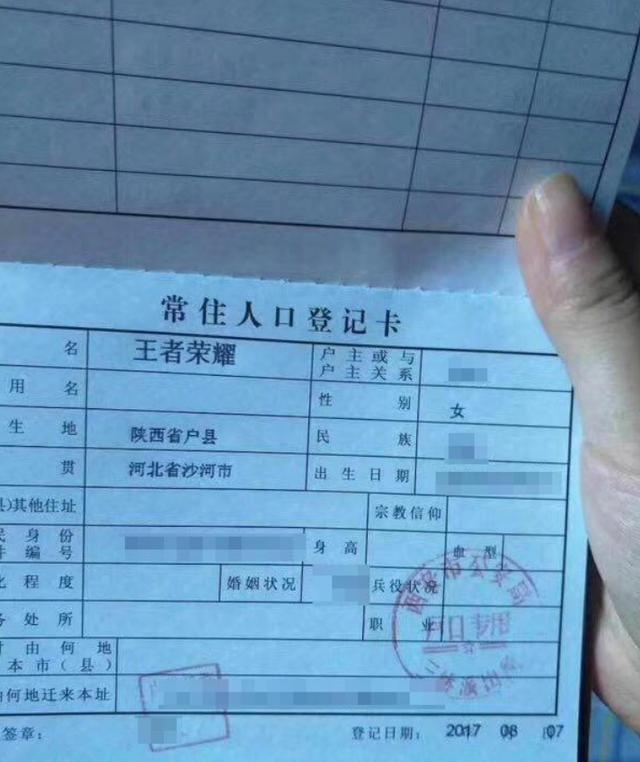 常住人口登记卡
名 王者荣耀 户主或与户主关系
用名 性别 女
生地 陕西省户县 民族
贯 河北省沙河市 出生日期
县)其他住址 宗教信仰
民身份 件编号 身高 血型
化程度 婚姻状况 兵役状况
务处所 职业
由何地 本市(县)
何地迁来本址
签章: 登记日期: 2017 08 07